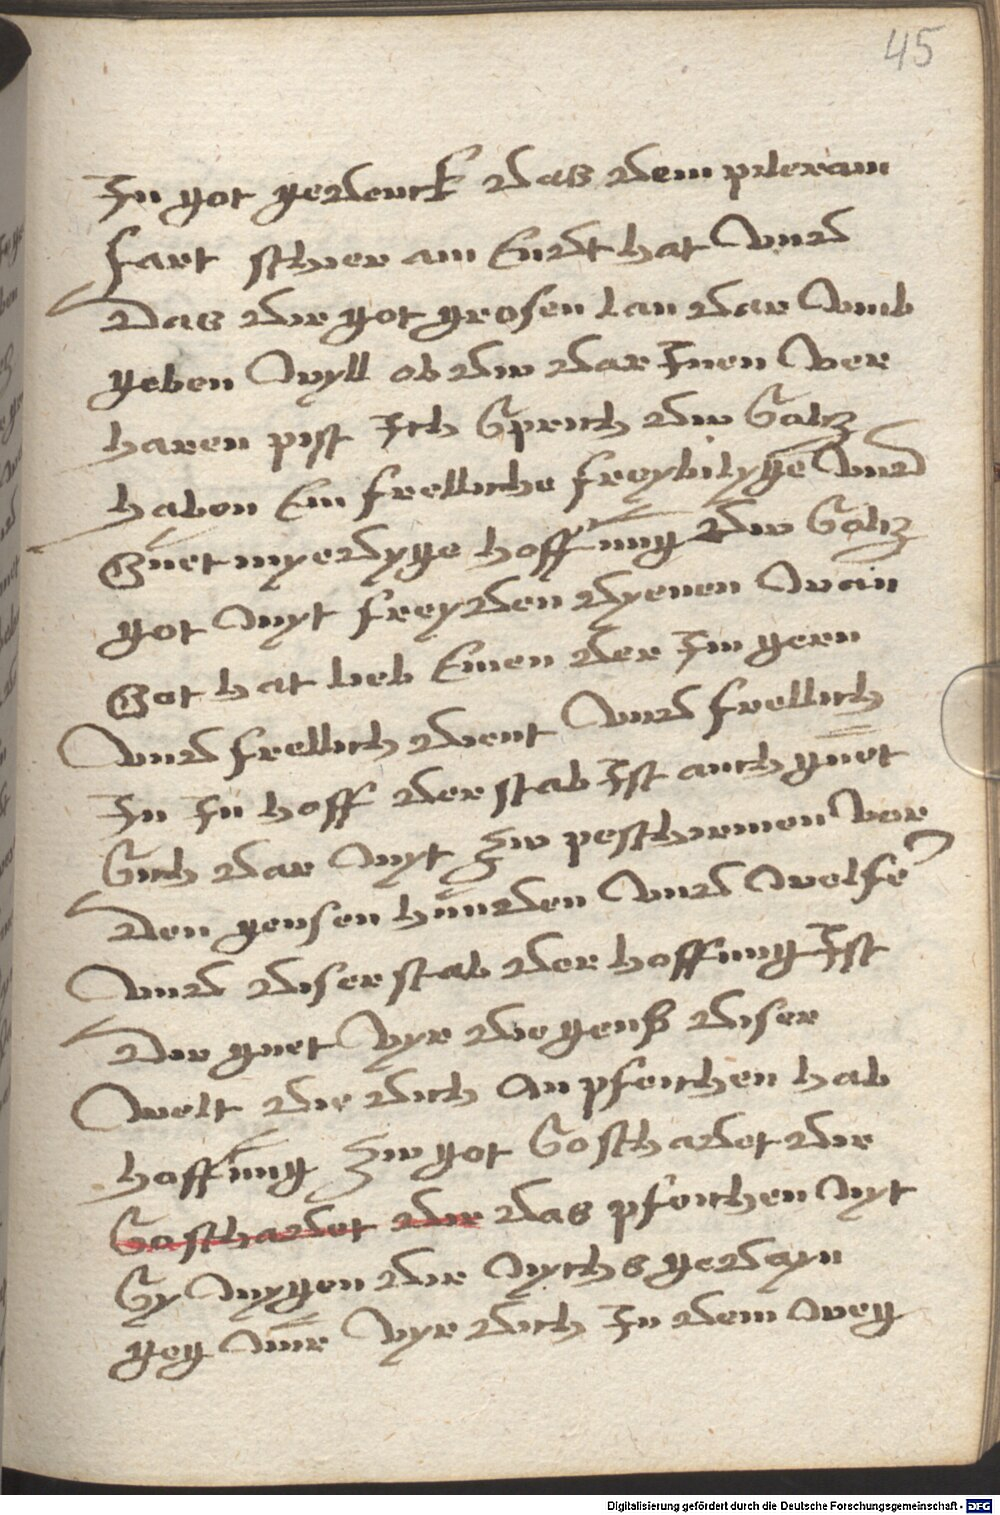 45
In got gedenck das dein pileram
fart schier am Endt hat vnd
Das dir got grosen lan dar vmb
geben wyll ob diu dar Inen ver
haren pist Ich Sprich diu Soltz
haben Ein frelliche freybilyge vnd
Guet myedyge hoffnung diu Soltz
got myt freyden dyenen wan
Got hat lieb Einen der Im gern
vnd frellich dient vnd frellich
In In hoff der stab Ist auch guet
Sich dar myt zw peschirmen vor
Den gensen hunden vnd wolfe
vnd diser stab der hoffnung Ist
Dir guet vyr die gens diser
welt die dich an pfeichen hab
hoffnung zw got So schadet dir
So schadet dir das pfeichen nyt
Sy mygen dir nychs gedayn
geg nur vyr dich In dem weg
Digitalisierung gefördert durch die Deutsche Forschungsgemeinschaft - DFG